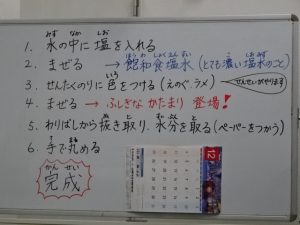 1. 水の中に塩を入れる
2. まぜる → 飽和食塩水(とても濃い塩水のこと)
3. せんたくのりに色をつける(えのぐ、ラメ) せんせいがやります
4. まぜる → ふしぎなかたまり 登場!
5. わりばしから抜き取り、水分を取る(ペーパーをつかう)
6. 手で丸める
かんせい
完成
12